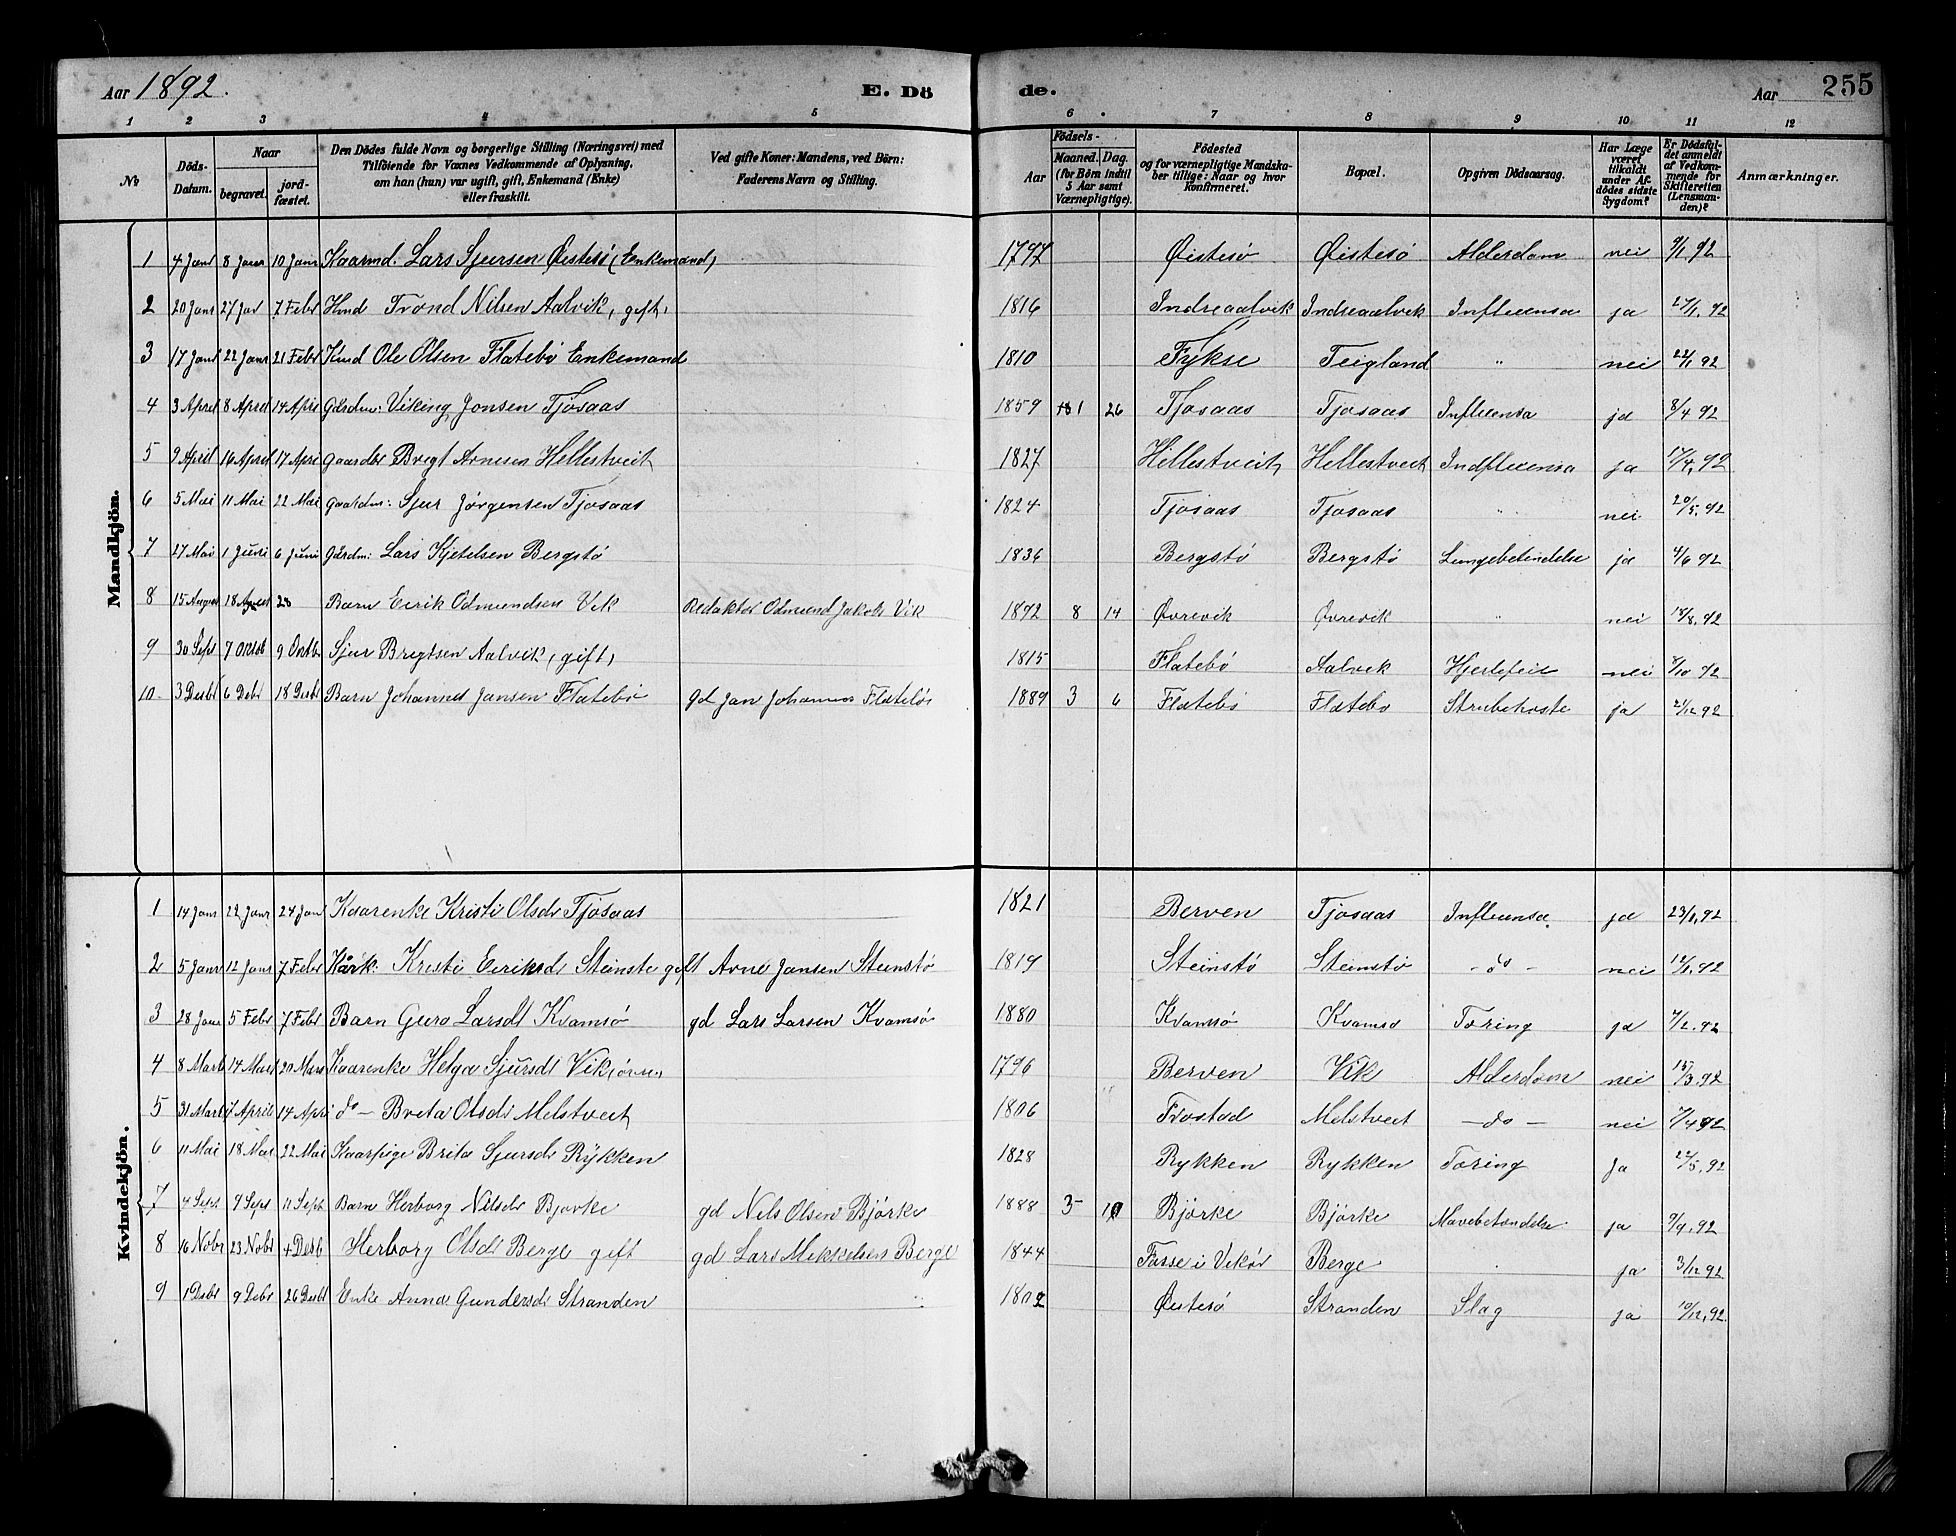 Aar 1892. E. Dö de. Aar 255
1 2 3 4 5 6 7 8 9 10 11 12
№ Döds-Datum. Naar begravet. jord-fæstet. Den Dödes fulde Navn og borgerlige Stilling (Næringsvei) med Tilföiende for Vaxnes Vedkommende af Oplysning, om han (hun) var ugift, gift, Enkemand (Enke) eller fraskilt. Ved gifte Koner: Mandens, ved Börn: Faderens Navn og Stilling. Aar Födsels- Maaned. Dag. (for Börn indtil 5 Aar samt Værnepligtige). Födested og for værnepligtige Mandskaber tillige: Naar og hvor Konfirmeret. Bopæl. Opgiven Dödsaarsag. Har Læge været tilkaldt under Afdödes sidste Sygdom? Er Dödsfaldet anmeldt af Vedkommende for Skifteretten (Lensmanden)? Anmærkninger.
Mandkjön.
1 4 Janr 8 Janr 10 Janr Kaarmd. Lars Sjursen Øistesö (Enkemand) 1797 Øistesö Øistesö Alderdom nei 9/1 92
2 20 Janr 27 Jar 7 Febr Hmd Trond Nilsen Aalvik, gift, 1816 Indreaalvik Indreaalvik Influensa ja 27/1, 92
3 17 Janr 22 Janr 21 Febr Kmd Ole Olsen Flatebö Enkemand 1810 Fykse Teigland " nei 22/1 92
4 3 April 8 April 14 Apri Gardm: Viking Jonsen Tjosaas 1859 1 26 Tjosaas Tjosaas Influensa ja 8/4 92
5 9 April 16 April 17 Apri Gaardbr Brygt Arnesen Hellestveit 1827 Hillestveit Hellestveit Indfluensa ja 17/4, 92
6 5 Mai 11 Mai 22 Mai Gaardm: Sjur Jörgensen Tjosaas 1824 Tjosaas Tjosaas " nei 20/5, 92
7 27 Mai 1 Juni 6 Juni Gardm: Lars Kjetelsen Bergstö 1836 Bergstö Bergstö Lungebetendelse ja 4/6 92
8 15 August 18 August 28 Barn Eirik Odmundsen Vik Redaktör Odmund Jakobs Vik 1892 8 14 Øvrevik Øvrevik " nei 18/8, 92
9 30 Sept 7 Oktb 9 Oktb Sjur Brygtsen Aalvik, gift, 1815 Flatebö Aalvik Hjertefeil nei 8/10 92
10 3 Desbr 6 Debr 18 Desbr Barn Johannes Jansen Flatebö gd Jan Johannes Flatebö 1889 3 6 Flatebö Flatebo Strubehoste ja 21/12 92
Kvindekjön.
1 14 Janr 22 Janr 24 Jan Kaarenke Kristi Olsdr Tjosaas 1821 Berven Tjosaas Influensa ja 23/1, 92
2 5 Janr 12 Janr 7 Febr Kårk: Kristi Eiriksdr Steinstö gift Arne Jansen Steinstö 1819 Steinstö Steinstö - do - nei 12/1, 92
3 28 Janr 5 Febr 7 Febr Barn Guro Larsdt Kvamsö gd Lars Larsen Kvamsö 1880 Kvamsö Kvamso Tæring ja 7/2. 92
4 8 Mart 14 Mart 20 Mars Kaarenke Helga Sjursdt Vikören 1796 Berven Vik Alderdom nei 15/3, 92
5 31 Mart 7 April 14 Apri do - Breta Olsdr Melstveit 1806 Frostad Melstveit - do - nei 7/4 92
6 11 Mai 18 Mai 22 Mai Kaarpige Brita Sjursdr Rykken 1828 Rykken Rykken Tæring Ja 22/5, 92
7 4 Sept 9 Sept 11 Sept Barn Herborg Nilsdr Bjørke gd Nils Olsen Björke 1888 3 10 Björke Björke Mavebetændelse ja 9/9, 92
8 16 Nobr 23 Nobr 4 Desb Herborg Olsdr Berge gift gd Lars Mikkelsen Berge 1844 Fosse i Vikör Berge ja 3/12 92
9 1 Debr 9 Debr 26 Desbr Enke Anna Gundersdr Stranden 1802 Øistesö Stranden Slag ja 10/12, 92.